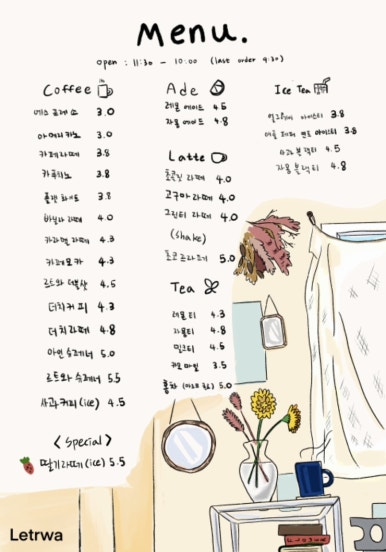 Menu.
open : 11:30 - 10:00 (last order 9:30)
Coffee
에스프레소 3.0
아메리카노 3.0
카페라떼 3.8
카푸치노 3.8
플랫 화이트 3.8
바닐라 라떼 4.0
카라멜 라떼 4.3
카페모카 4.3
4.5
더치커피 4.3
더치라떼 4.8
아인슈페너 5.0
슈페너 5.5
사과커피(ice) 4.5
< Special >
딸기라떼(ice) 5.5
Ade
레몬 에이드 4.5
자몽 에이드 4.8
Latte
초콜릿 라떼 4.0
고구마 라떼 4.0
그린티 라떼 4.0
(shake)
초코 5.0
Tea
레몬티 4.3
자몽티 4.8
밀크티 4.5
카모마일 3.5
홍차 5.0
Ice Tea
아이스티 3.8
애플 페퍼 민트 아이스티 3.8
사과 블랙티 4.5
자몽 블랙티 4.8
Letrwa